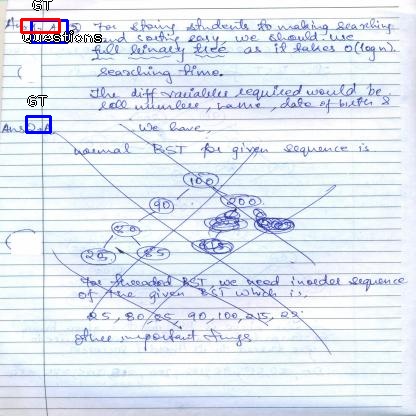 GT
Questions
For storing students to making searching
and sorting easy, we should use
full binary tree as it takes O(logn)
searching time.
The diff variables required would be
roll number, name, date of birth &
GT
We have,
normal BST for given sequence is
100
90 200
80
25 85
For threaded BST, we need inorder sequence
of the given BST which is,
25, 80, 85, 90, 100, 215, 22
other important things